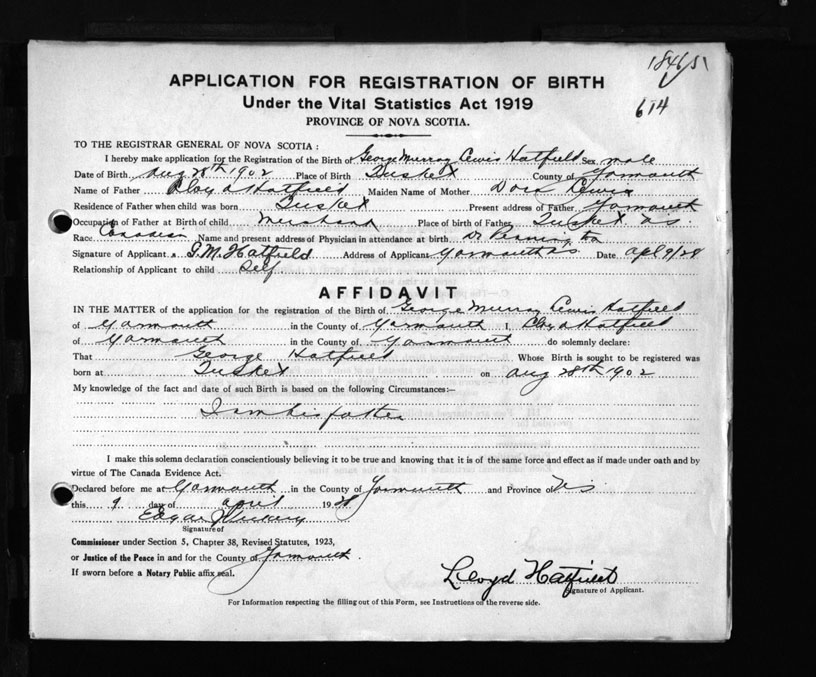 184651
614
APPLICATION FOR REGISTRATION OF BIRTH
Under the Vital Statistics Act 1919
PROVINCE OF NOVA SCOTIA.
TO THE REGISTRAR GENERAL OF NOVA SCOTIA :
I hereby make application for the Registration of the Birth of George Murray Lewis Hatfield Sex male
Date of Birth Aug 28th 1902 Place of Birth Tusket County of Yarmouth
Name of Father Lloyd Hatfield Maiden Name of Mother Lewis
Residence Father when child was born Tusket Present address of Father Yarmouth
Occupation of Father at Birth of child Merchant Place of birth of Father Tusket NS.
Race Canadian Name and present address of Physician in attendance at birth Dr
Signature of Applicant G. M. Hatfield Address of Applicant Yarmouth NS Date Apl 9/28
Relationship of Applicant to child Self
AFFIDAVIT
IN THE MATTER of the application for the registration of the Birth of George Murray Lewis Hatfield
of Yarmouth in the County of Yarmouth I, Lloyd Hatfield
of Yarmouth in the County of Yarmouth do solemnly declare:
That George Hatfield Whose Birth is sought to be registered was
born at Tusket on Aug 28th 1902
My knowledge of the fact and date of such Birth is based on the following Circumstances:—
I am his father
I make this solemn declaration conscientiously believing it to be true and knowing that it is of the same force and effect as if made under oath and by
virtue of The Canada Evidence Act.
Declared before me at Yarmouth in the County of Yarmouth and Province of NS
this 9 day of April 1928
Edgar
Signature of
Commissioner under Section 5, Chapter 38, Revised Statutes, 1923,
or Justice of the Peace in and for the County of Yarmouth.
If sworn before a Notary Public affix seal.
Lloyd Hatfield
Signature of Applicant.
For Information respecting the filling out of this Form, see Instructions on the reverse side.